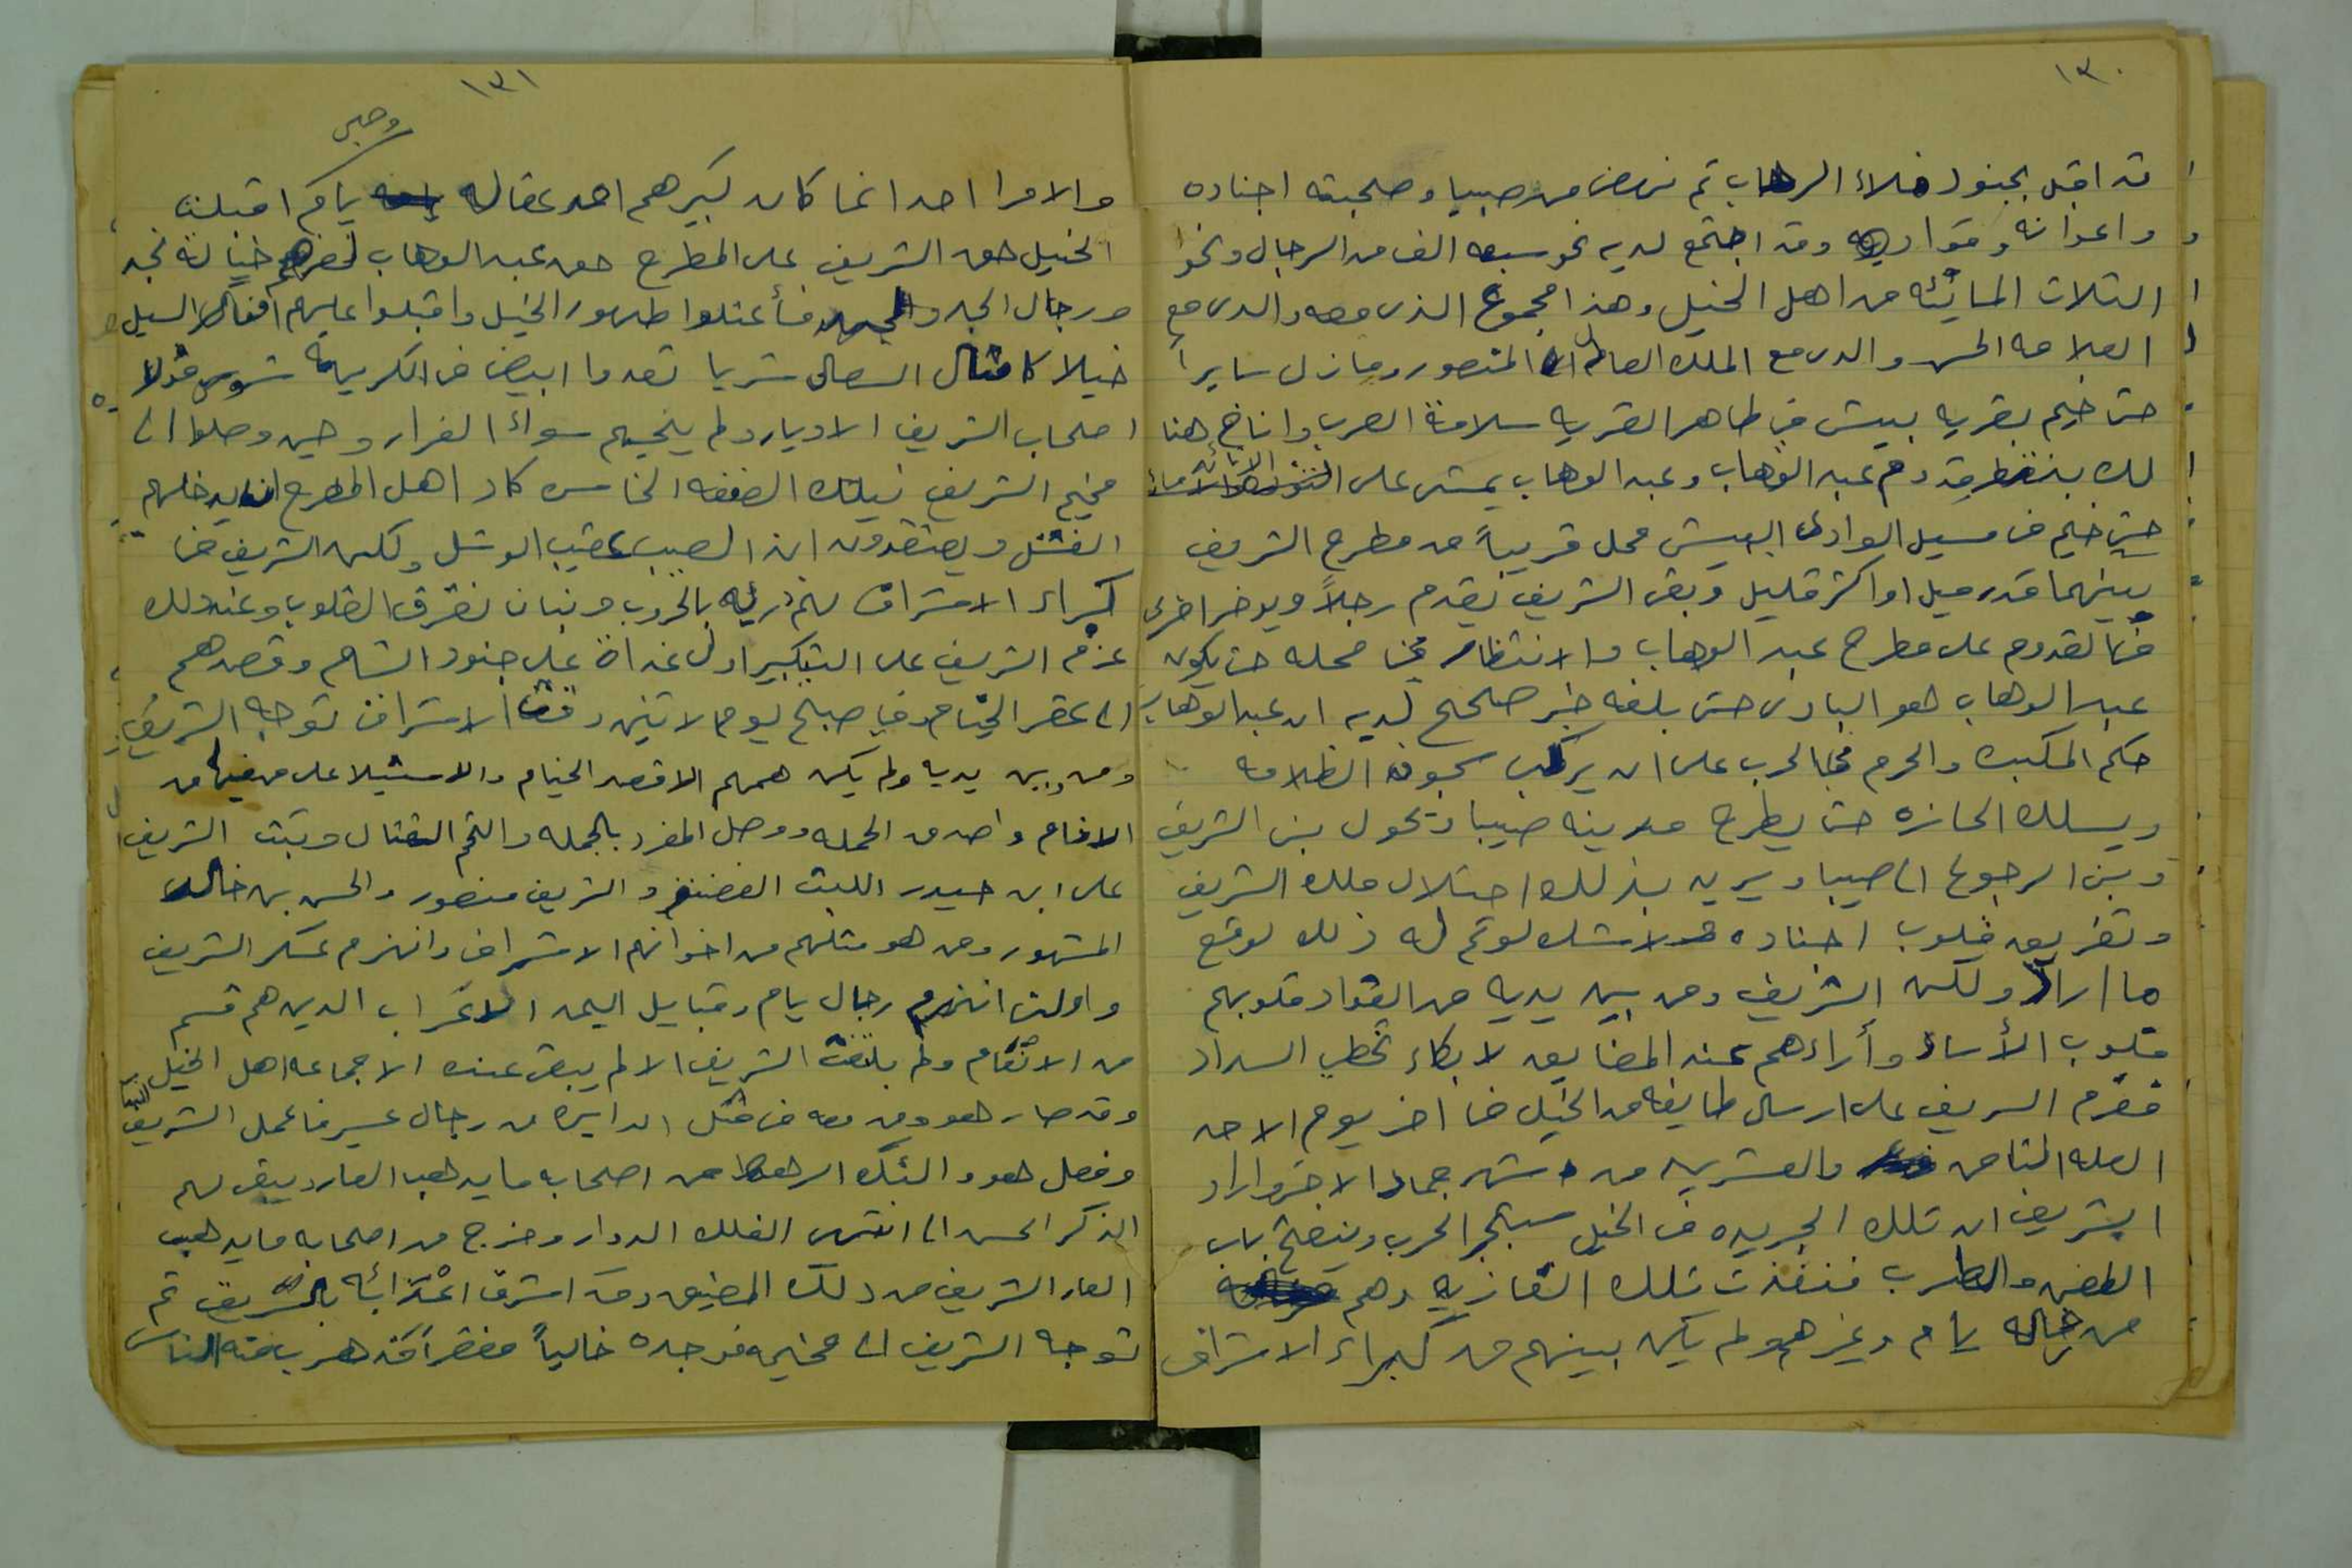 ١٣٠
قد اقبل بجنود ملاء الرحاب ثم نهض من صبيا وصحبته اجناده
واعوانه وقواده وقد اجتمع لديه نحو سبعه الف من الرجال ونحو
الثلاث المائئه من اهل الخيل وهذا مجموع الذى معه والدى مع
العلامه الحسن والدى مع الملك العادل المنصور ومازل سايراً
حتى خيم بقريه بيش في طاهر القريه سلامة العرب واناخ هنا
لك ينتظر قدوم عبد الوهاب وعبد الوهاب يمشى على
حتى خيم فى مسيل الوادى البيش محل قريباً من مطرح الشريف
بينهما قدر ميل او اكثر قليل وبقى الشريف يقدم رجلاً ويوخر اخرى
فى القدوم على مطرح عبد الوهاب والانتظار في محله حتى يكون
عبد الوهاب هو البادى حتى بلغه خبر صحيح لديه ان عبد الوهاب
حكم المكيده والحزم في الحرب على ان يركب سجوف الظلامه
ويسلك الحازه حتى يطرح مدينه صبيا ويحول بين الشريف
وبين الرجوع الى صبيا ويريد بذلك احتلال ملك الشريف
وتفريق قلوب اجناده ولاشك لوتم له ذلك لوقع
ما اراد ولكن الشريف ومن بين يديه من القواد قلوبهم
قلوب الأساد وأراءهم عند المضايق لا بكاء تخطي السداد
فعزم السريف على ارسال طايفه من الخيل فى اخر يوم الاحد
العله الثامن والعشرين من شهر جماد الاخر واراد
الشريف ان تلك الجريده فى الخيل ستجر الحرب وينفتح باب
الطعن والضرب فنفذت تلك الغازيه وهم
من خياله يام وغيرهم ولم يكن بينهم من كبراء الاشراف
١٣١
وحين
والامرا احد انما كان كبيرهم احد عقاله يام اقبلت
الخيل حق الشريف على المطرح حق عبد الوهاب خيالة نجد
ورجال الجد فأعتلوا ظهور الخيل واقبلوا عليهم السيل
خيلا كامثال السعالى شزبا تعدوا ابيض فى الكريهة شوس فولا
اصحاب الشريف الادبار ولم ينجيهم سواء الفرار وحين وصلوا الى
مخيم الشريف بتلك الصفقه الخاسره كاد اهل المطرح ان يدخلهم
الفشل ويعتقدون ان الصبب عقيب الوشل ولكن الشريف فى
كبراء الاشراف لهم دريه بالحروب وثبات تفرق القلوب وعند ذلك
عزم الشريف على التبكير اول غداة على جنود الشام وقصدهم
الى عقر الخيام وفي صبح يوم لاثنين وقت الاشراق توجه الشريف
ومن بين يديه ولم يكن همهم الا قصد الخيام والاستيلا على من فيها من
الاقام واصدق الحمله ووصل المفرد بالجمله والتحم القتال وثبت الشريف
على ابن حيدر الليث الغضنفر والشريف منصور والحسن بن خالد
المشهور ومن هو مثلهم من اخوانهم الاشراف وانهزم عسكر الشريف
واولت انهزم رجال يام وقبايل اليمن الاغراب الدين هم قسم
من الانعام ولم يلتفت الشريف الا لم يبق عنده الا جماعه اهل الخيل
وقد صار هو ومن معه فى مثل الدايره من رجال عسير فاعمل الشريف
وفعل هو واليك الرهط من اصحابه ما يدهب العار ويبقى لهم
الذكر الحسن الى انتهى الفلك الدوار وخرج من اصحابه ما يدهب
العار الشريف من ذلك المضيق وقد اشرق اعدائه بالريق ثم
توجه الشريف الى مخيمه فوجده خالياً مقفراً قد هرب منه الناس